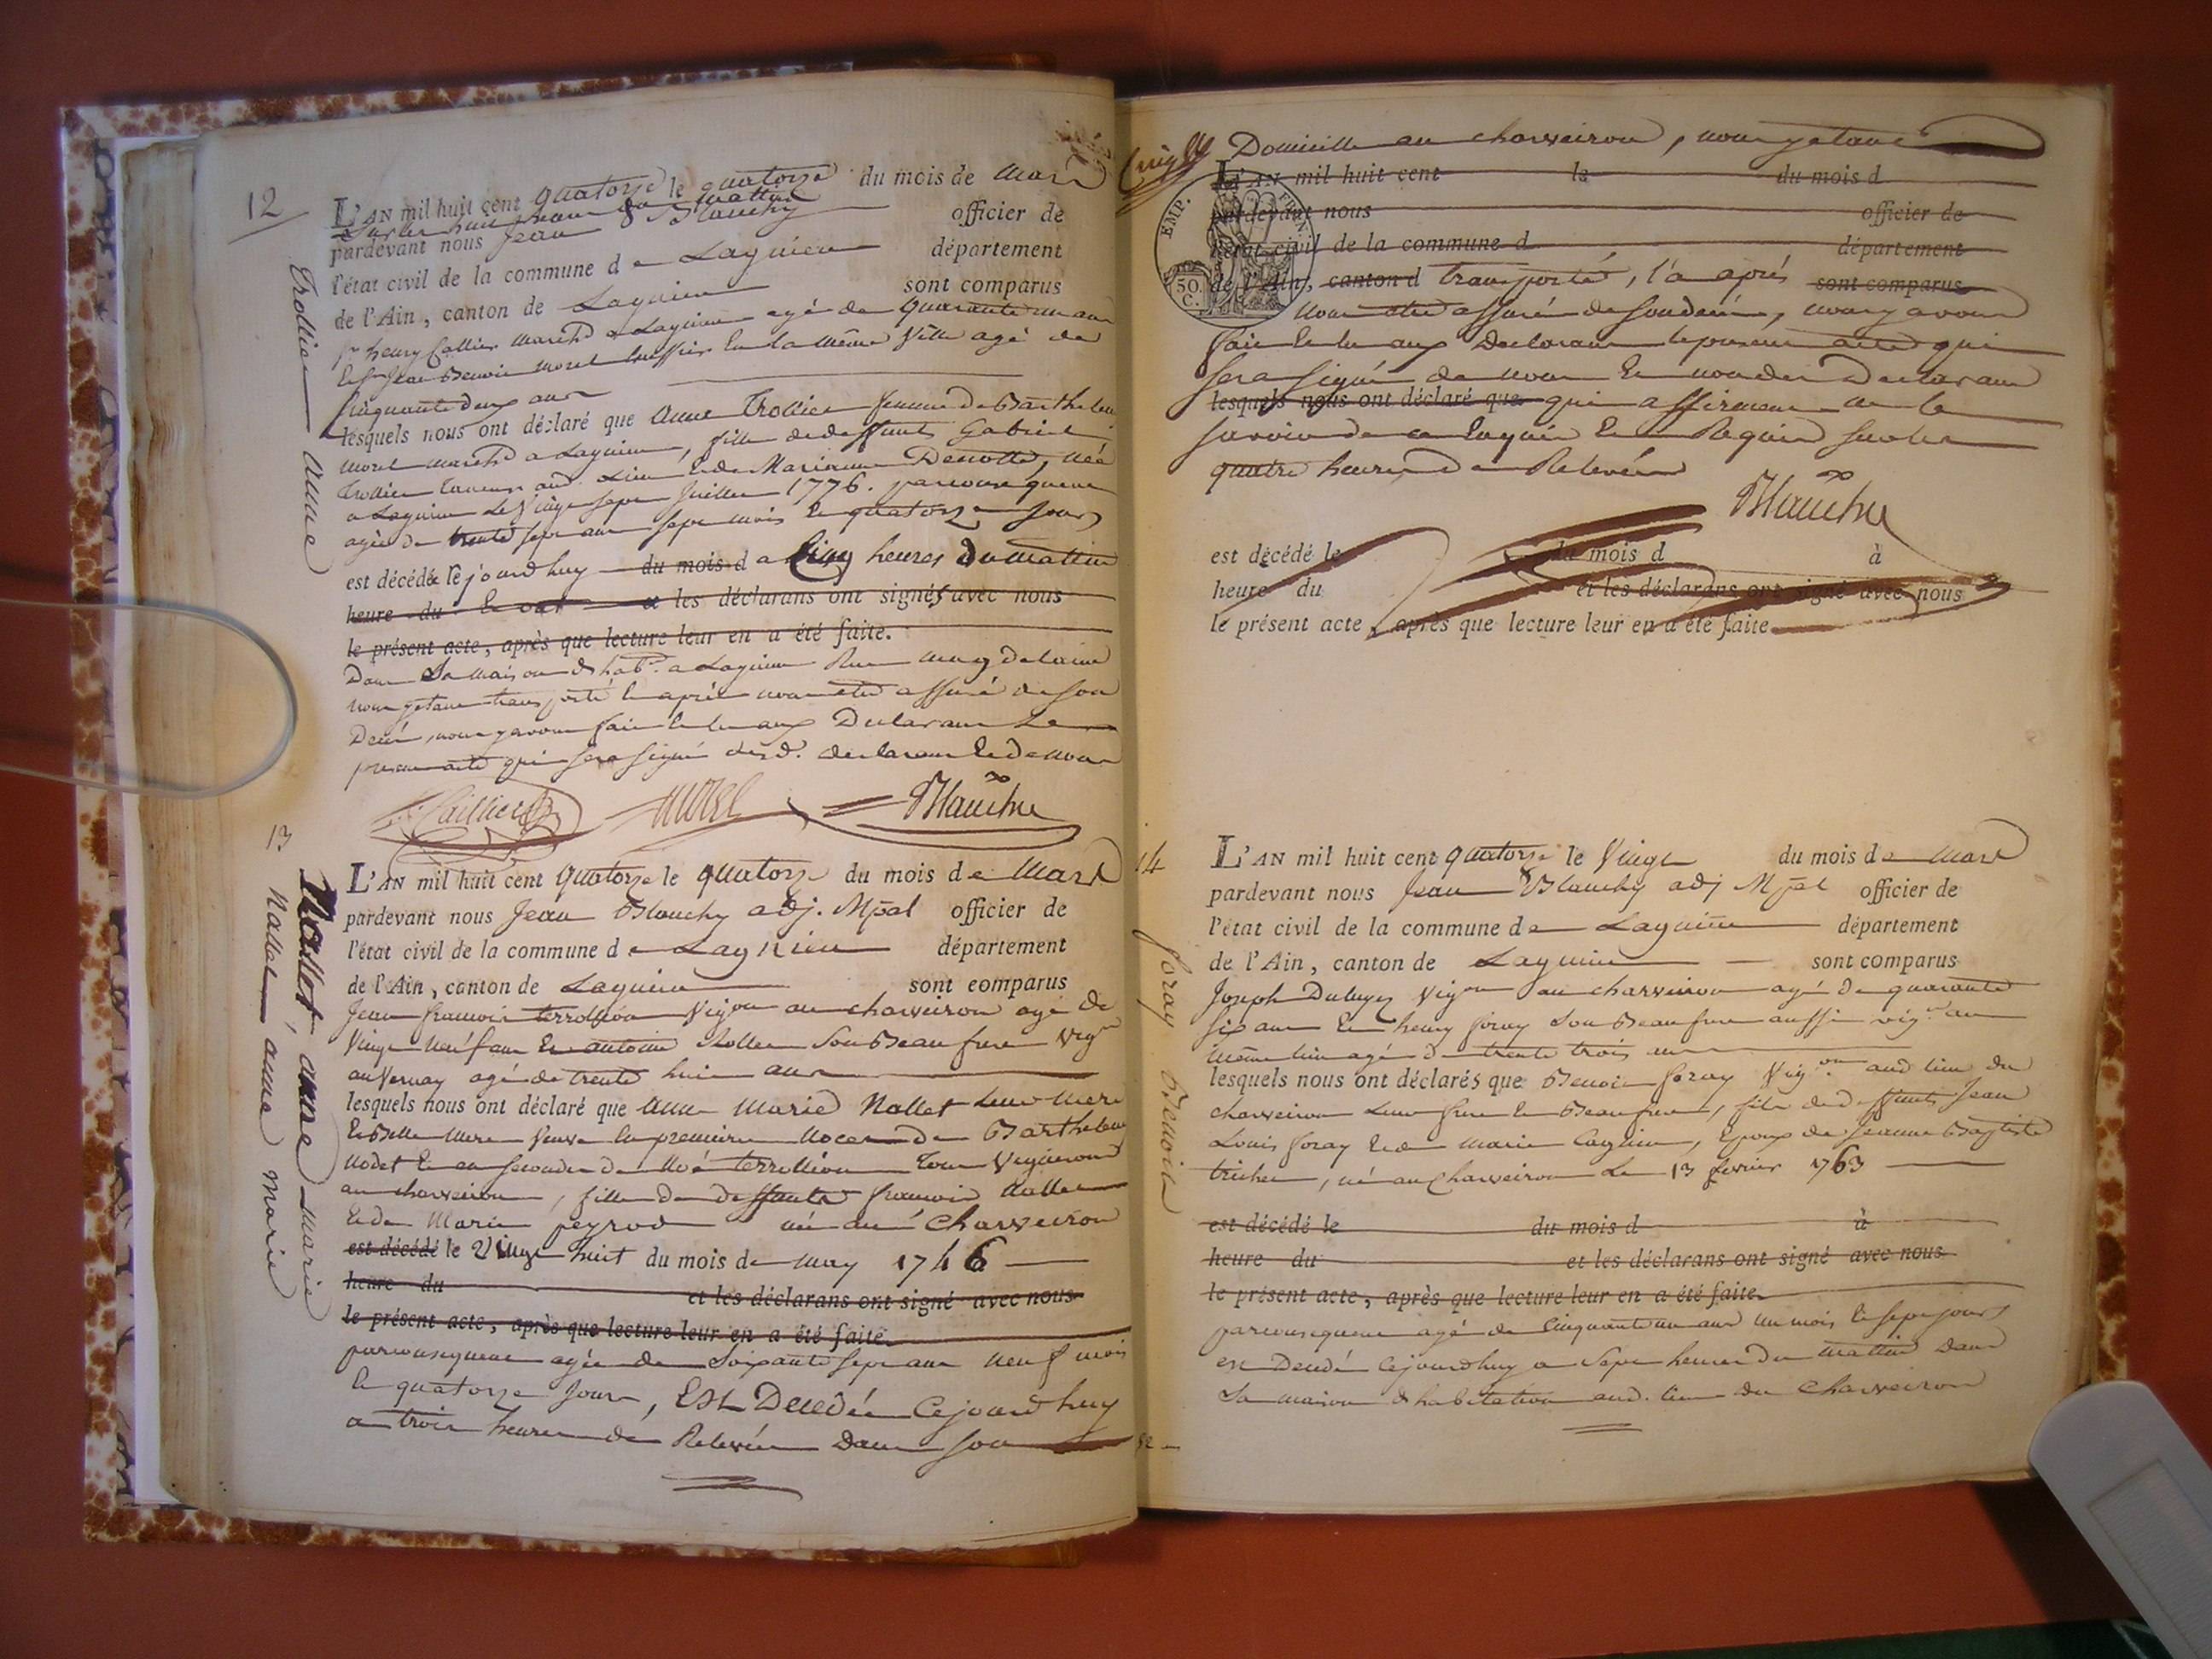 12
Trollier anne
L'AN mil huit cent quatorze le quatorze du mois de Mars
Sur les huit heures du mattin
pardevant nous Jean Blanchy officier de
l'état civil de la commune de Lagnieu département
de l'Ain, canton de Lagnieu sont comparus
Sr henry Caillier march'd a Lagnieu agé de quarante un ans
Et Sr Jean Benoit morel huissier En la même Ville agé de
Cinquante deux ans
lesquels nous ont déclaré que Anne Trollier femme de Barthelemi
morel march'd a Lagnieu, fille de deffunts Gabriel
Trollier aud. Lieu Et de Marianne, née
a Lagnieu Le Vingt sept Juillet 1776. par consequent
agée de trente sept ans sept mois Et quatorze Jours
est décédée le jourd'huy du mois d a Cinq heures du mattin
heure du et les déclarans ont signés avec nous
le présent acte, après que lecture leur en a été faite.
Dans Sa maison d'hab.on a Lagnieu Rue magdelaine
nous y etant transporté Et après nous etre assuré de son
Decès, nous y avons fait Et lu aux Declarans Le
present acte qui sera signé desd. declarans Et de nous
Caillier morel Blanchy
13
Nallet, anne marie
Nallet anne marie
L'AN mil huit cent quatorze le quatorze du mois de Mars
pardevant nous Jean Blanchy adj. Mpal officier de
l'état civil de la commune de Lagnieu département
de l'Ain, canton de Lagnieu sont comparus
Jean françois terrollion Vigon au charveiron agé de
Vingt neuf ans Et antoine Son Beau frere Vign
au Vernay agé de trente huit ans
lesquels nous ont déclaré que Anne Marie Nallet leur mere
Et Belle mere Veuve En premieres Noces de Barthelemi
Nodet Et en secondes de Noé terrollion tous Vignerons
au charveiron, fille de deffunts françois Nallet
Et de Marie peyrod née au Charveiron
est décédé le Vingt huit du mois de may 1746
heure du et les déclarans ont signé avec nous
le présent acte, après que lecture leur en a été faite
par consequent agée de Soixante sept ans neuf mois
Et quatorze Jours, Est Decedée Cejourd'huy
a trois heures de Relevée Dans son
Domicille au charveiron, nous y etant
L'AN mil huit cent le du mois d
pardevant nous officier de
l'état civil de la commune d département
de l'Ain, canton d transporté, Et après sont comparus
Nous etre assuré de son decés, nous y avons
fait Et lu aux Declarans le present acte qui
sera signé de nous Et non des Declarans
lesquels nous ont déclaré que qui affirment ne le
savoir de ce Enquis Et Requis sur les
quatre heures de Relevée
Blanchy
EMP. FRAN.
50. C.
est décédé le du mois d à
heure du et les déclarans ont signé avec nous
le présent acte, après que lecture leur en a été faite
14
foray Benoit
L'AN mil huit cent quatorze le Vingt du mois de Mars
pardevant nous Jean Blanchy adj Mpal officier de
l'état civil de la commune de Lagnieu département
de l'Ain, canton de Lagnieu sont comparus
Joseph Vigon au charveiron agé de quarante
six ans Et henry foray Son Beau frere aussi vign au
même lieu agé de trente trois ans
lesquels nous ont déclarés que Benoit foray Vigon aud lieu du
charveiron Leur frere Et Beau frere, fils de deffunts Jean
Louis foray Et de Marie, Epoux de Jeanne Baptiste
né au Charveiron Le 13 fevrier 1763
est décédé le du mois d à
heure du et les déclarans ont signé avec nous
le présent acte, après que lecture leur en a été faite.
par consequent agé de Cinquante un ans un mois Et sept jours
est Decedé Cejourd'huy a Sept heures du mattin Dans
Sa maison d'habitation aud. lieu du Charveiron